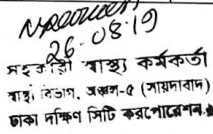 26-08-19
সহকারী স্বাস্থ্য কর্মকর্তা
স্বাস্থ্য বিভাগ, অঞ্চল-৫ (সায়দাবাদ)
ঢাকা দক্ষিণ সিটি করপোরেশন।